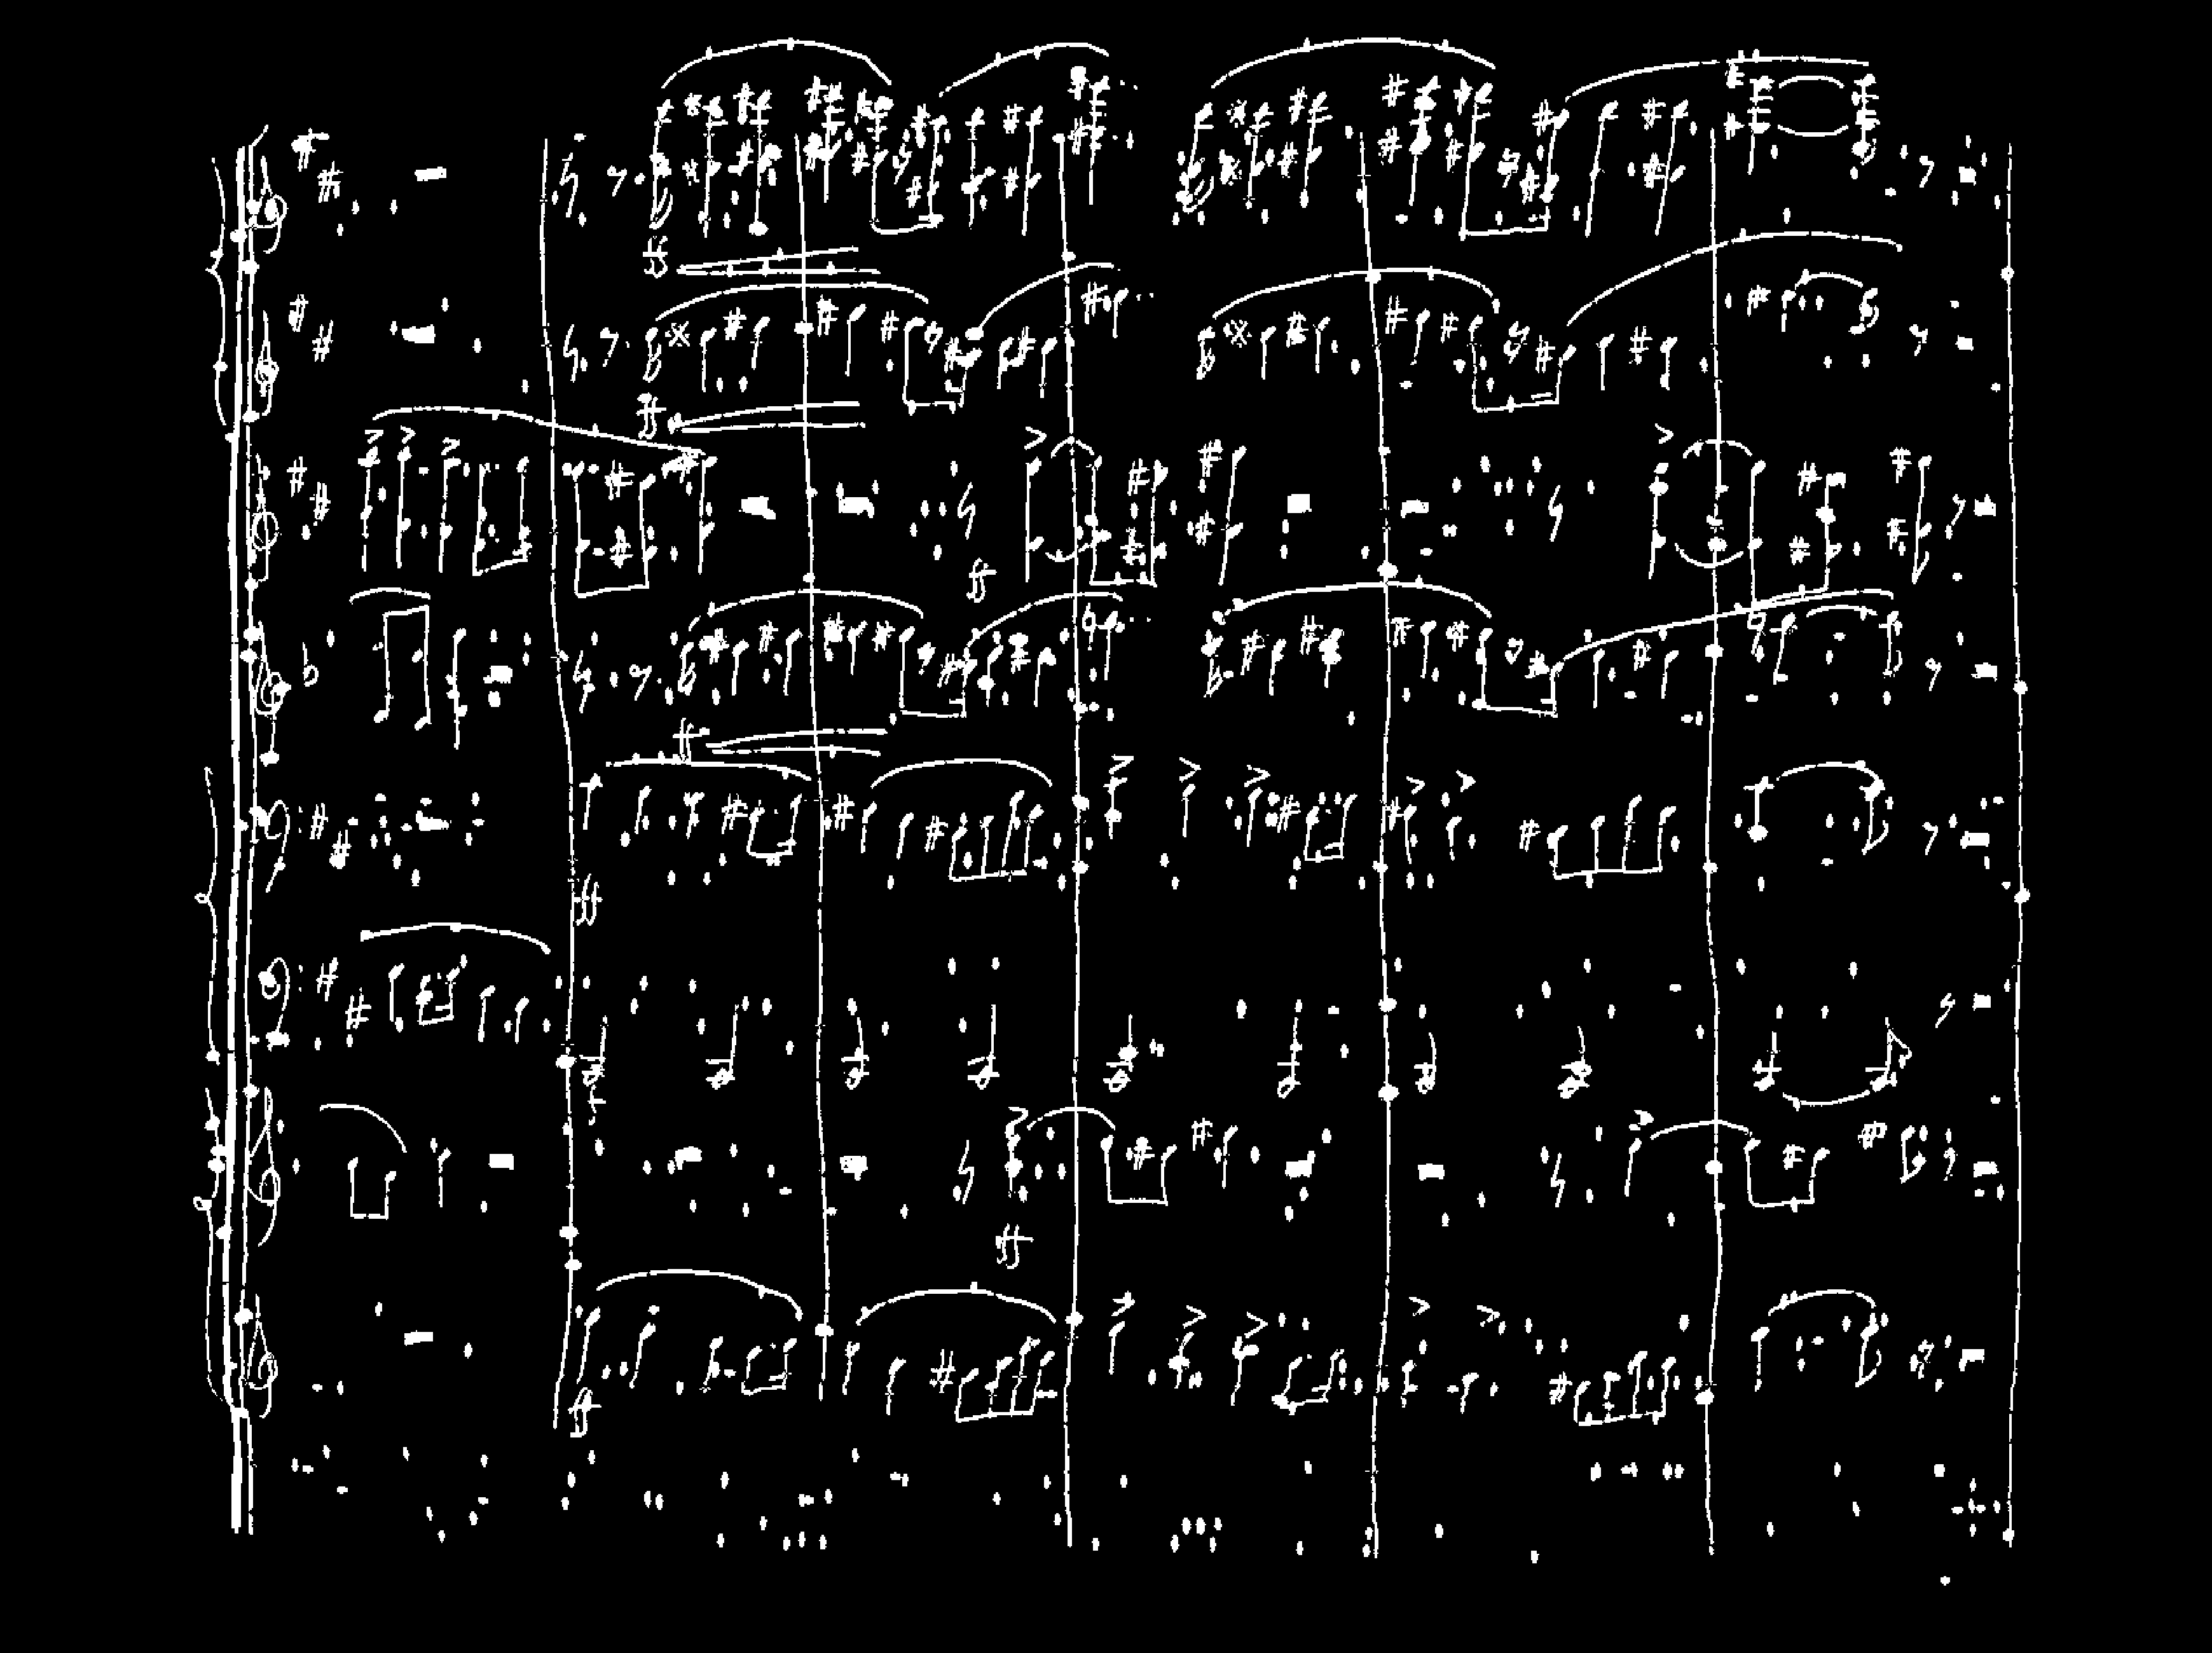 ff
ff
ff
ff
ff
ff
ff